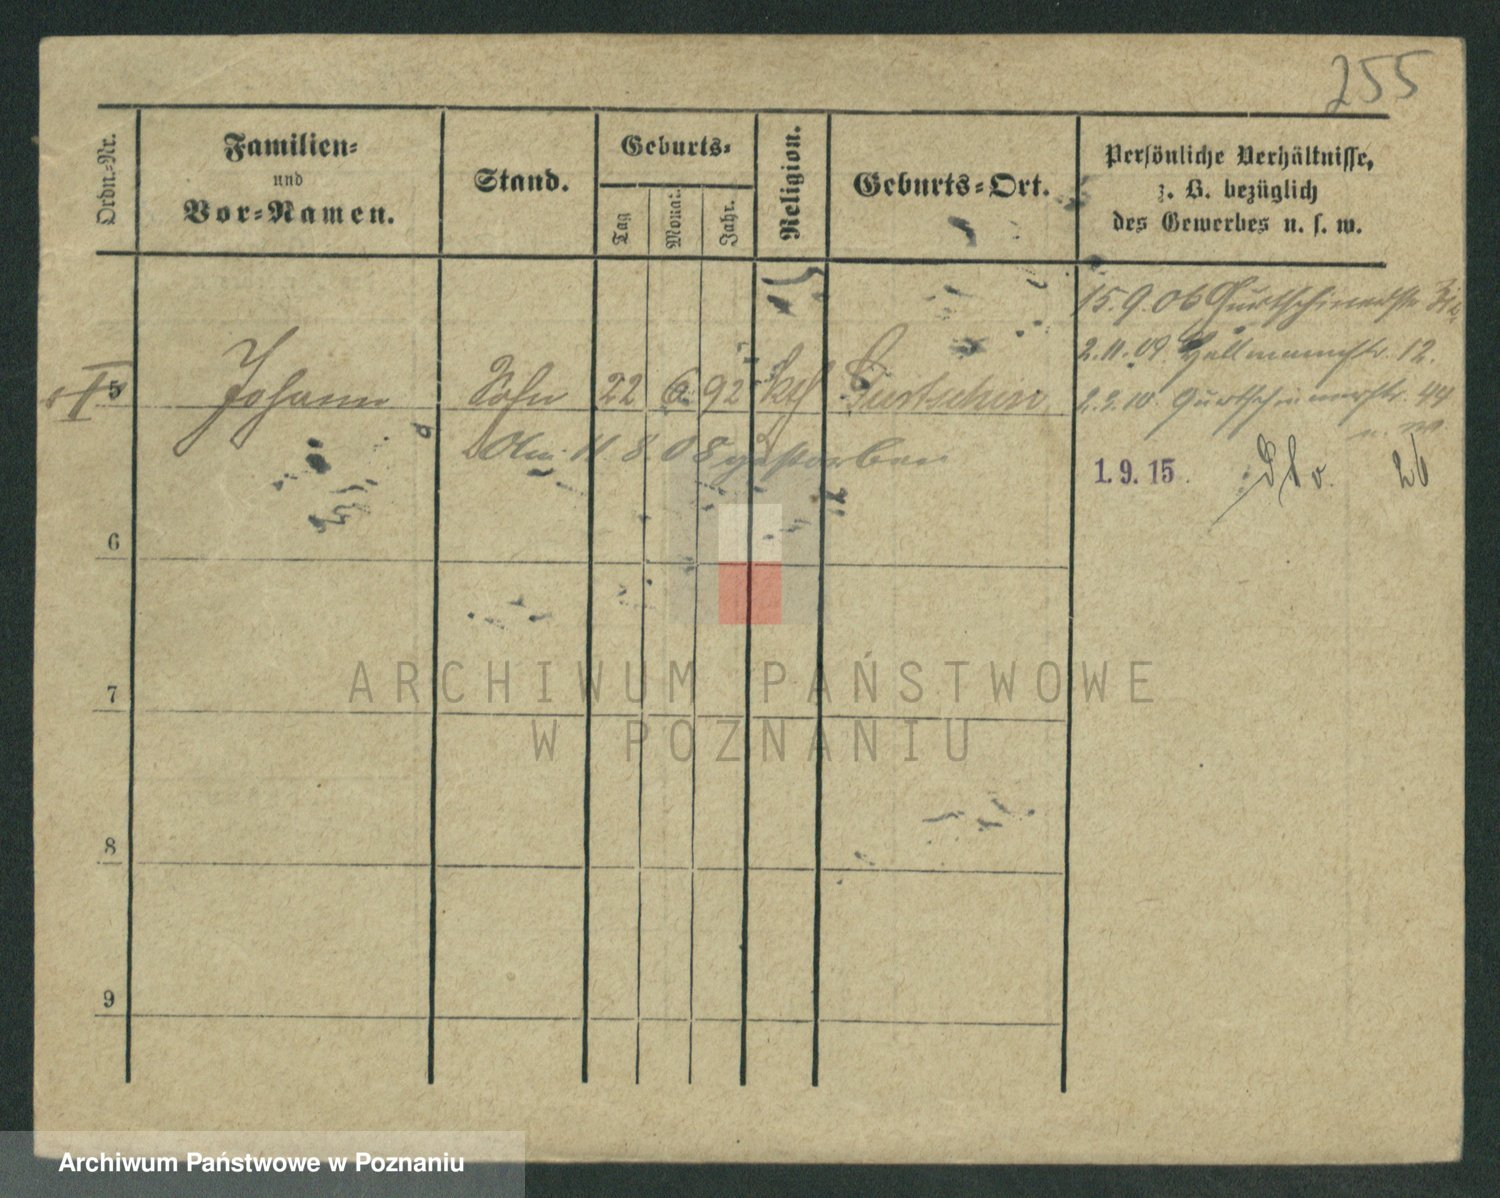 255
Ordn.-Nr.
Familien-
und
Vor-Namen.
Stand.
Geburts-
Tag
Monat.
Jahr.
Religion.
Geburts-Ort.
Persönliche Verhältnisse,
z. B. bezüglich
des Gewerbes u. s. w.
15.9.06 Gurtschinerstr
2.11.09 Hallmannstr. 12.
5 Johann Sohn 22 6. 92 kath Gurtschin
2.2.10. Gurtschinerstr. 44
Am 11.8.08 gestorben
1. 9. 15. Dto. 26
6
7
8
9
ARCHIWUM PAŃSTWOWE
W POZNANIU
Archiwum Państwowe w Poznaniu